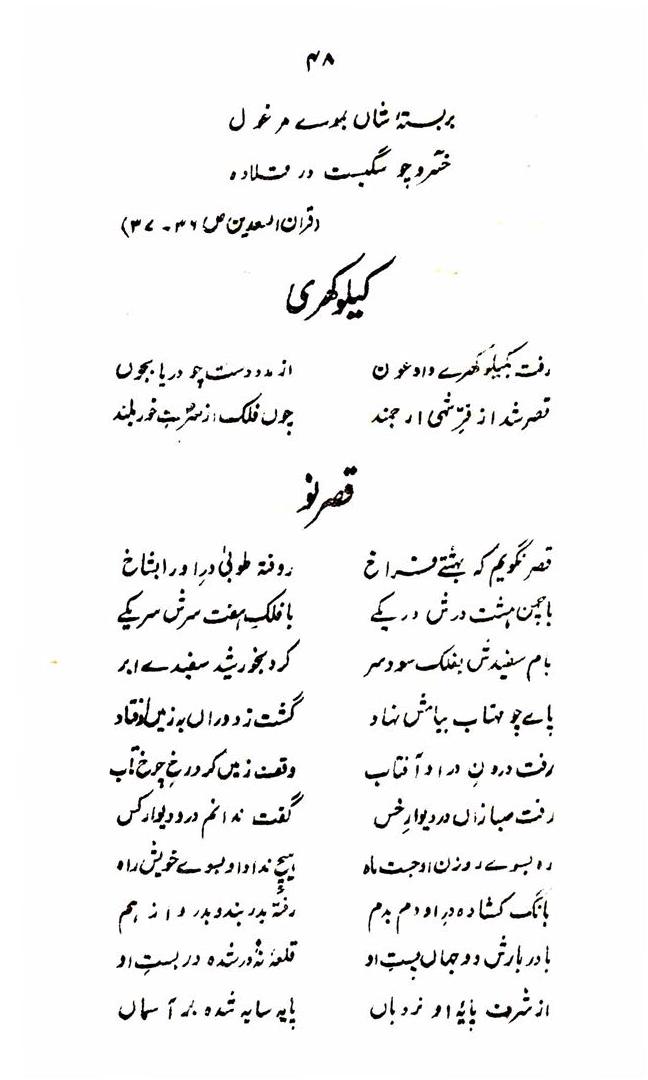 ۴۸
بربستۂ شاں بموے مرغول
خسرو چو سگیست در قلادہ
(قران السعدین ص ۳۶-۳۷)
کیلوکھری
رفت بکیلوکھرے داد عون از مدد دست چو دریا بجوں
قصر شد از فرِّ شہی ارجمند چوں فلک از منزلتِ خور بلند
قصرِ نو
قصر نگویم کہ بہشتے فراخ روفتہ طوبیٰ درِ او را بشاخ
باچمن ہشت درش در یکے با فلکِ ہفت سرش سر یکے
بام سفیدش بفلک سود سر کرد بخورشید سفیدے ابر
پاے چو مہتاب ببامش نہاد گشت ز دوراں بہ زمیں اوفتاد
رفت درونِ درِ او آفتاب وقعت زمیں کرد رخِ چرخ تاب
رفت صبا زاں در دیوار خس گفت ندانم در و دیوار کس
رہ بسوے روزن او جست ماہ ہیچ نداد او بسوے خویش راہ
بانگ کشادہ درِ او دم بدم رفتہ بدر بند و بدر واز ہم
با در بارش دو جہاں بستِ او قلعۂ نہ در شدہ در بستِ او
از شرف پایۂ او نردباں پایہ سایہ شدہ بر آسماں